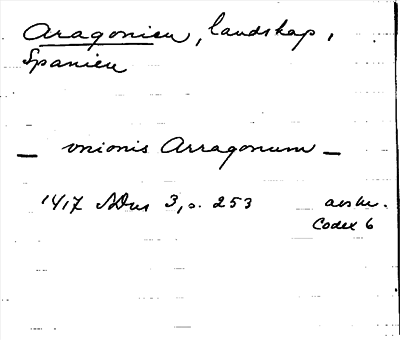 Aragonien, landskap,
Spanien
— vnionis Arragonum —
1417 SDns 3, s. 253 avskr.
Codex 6